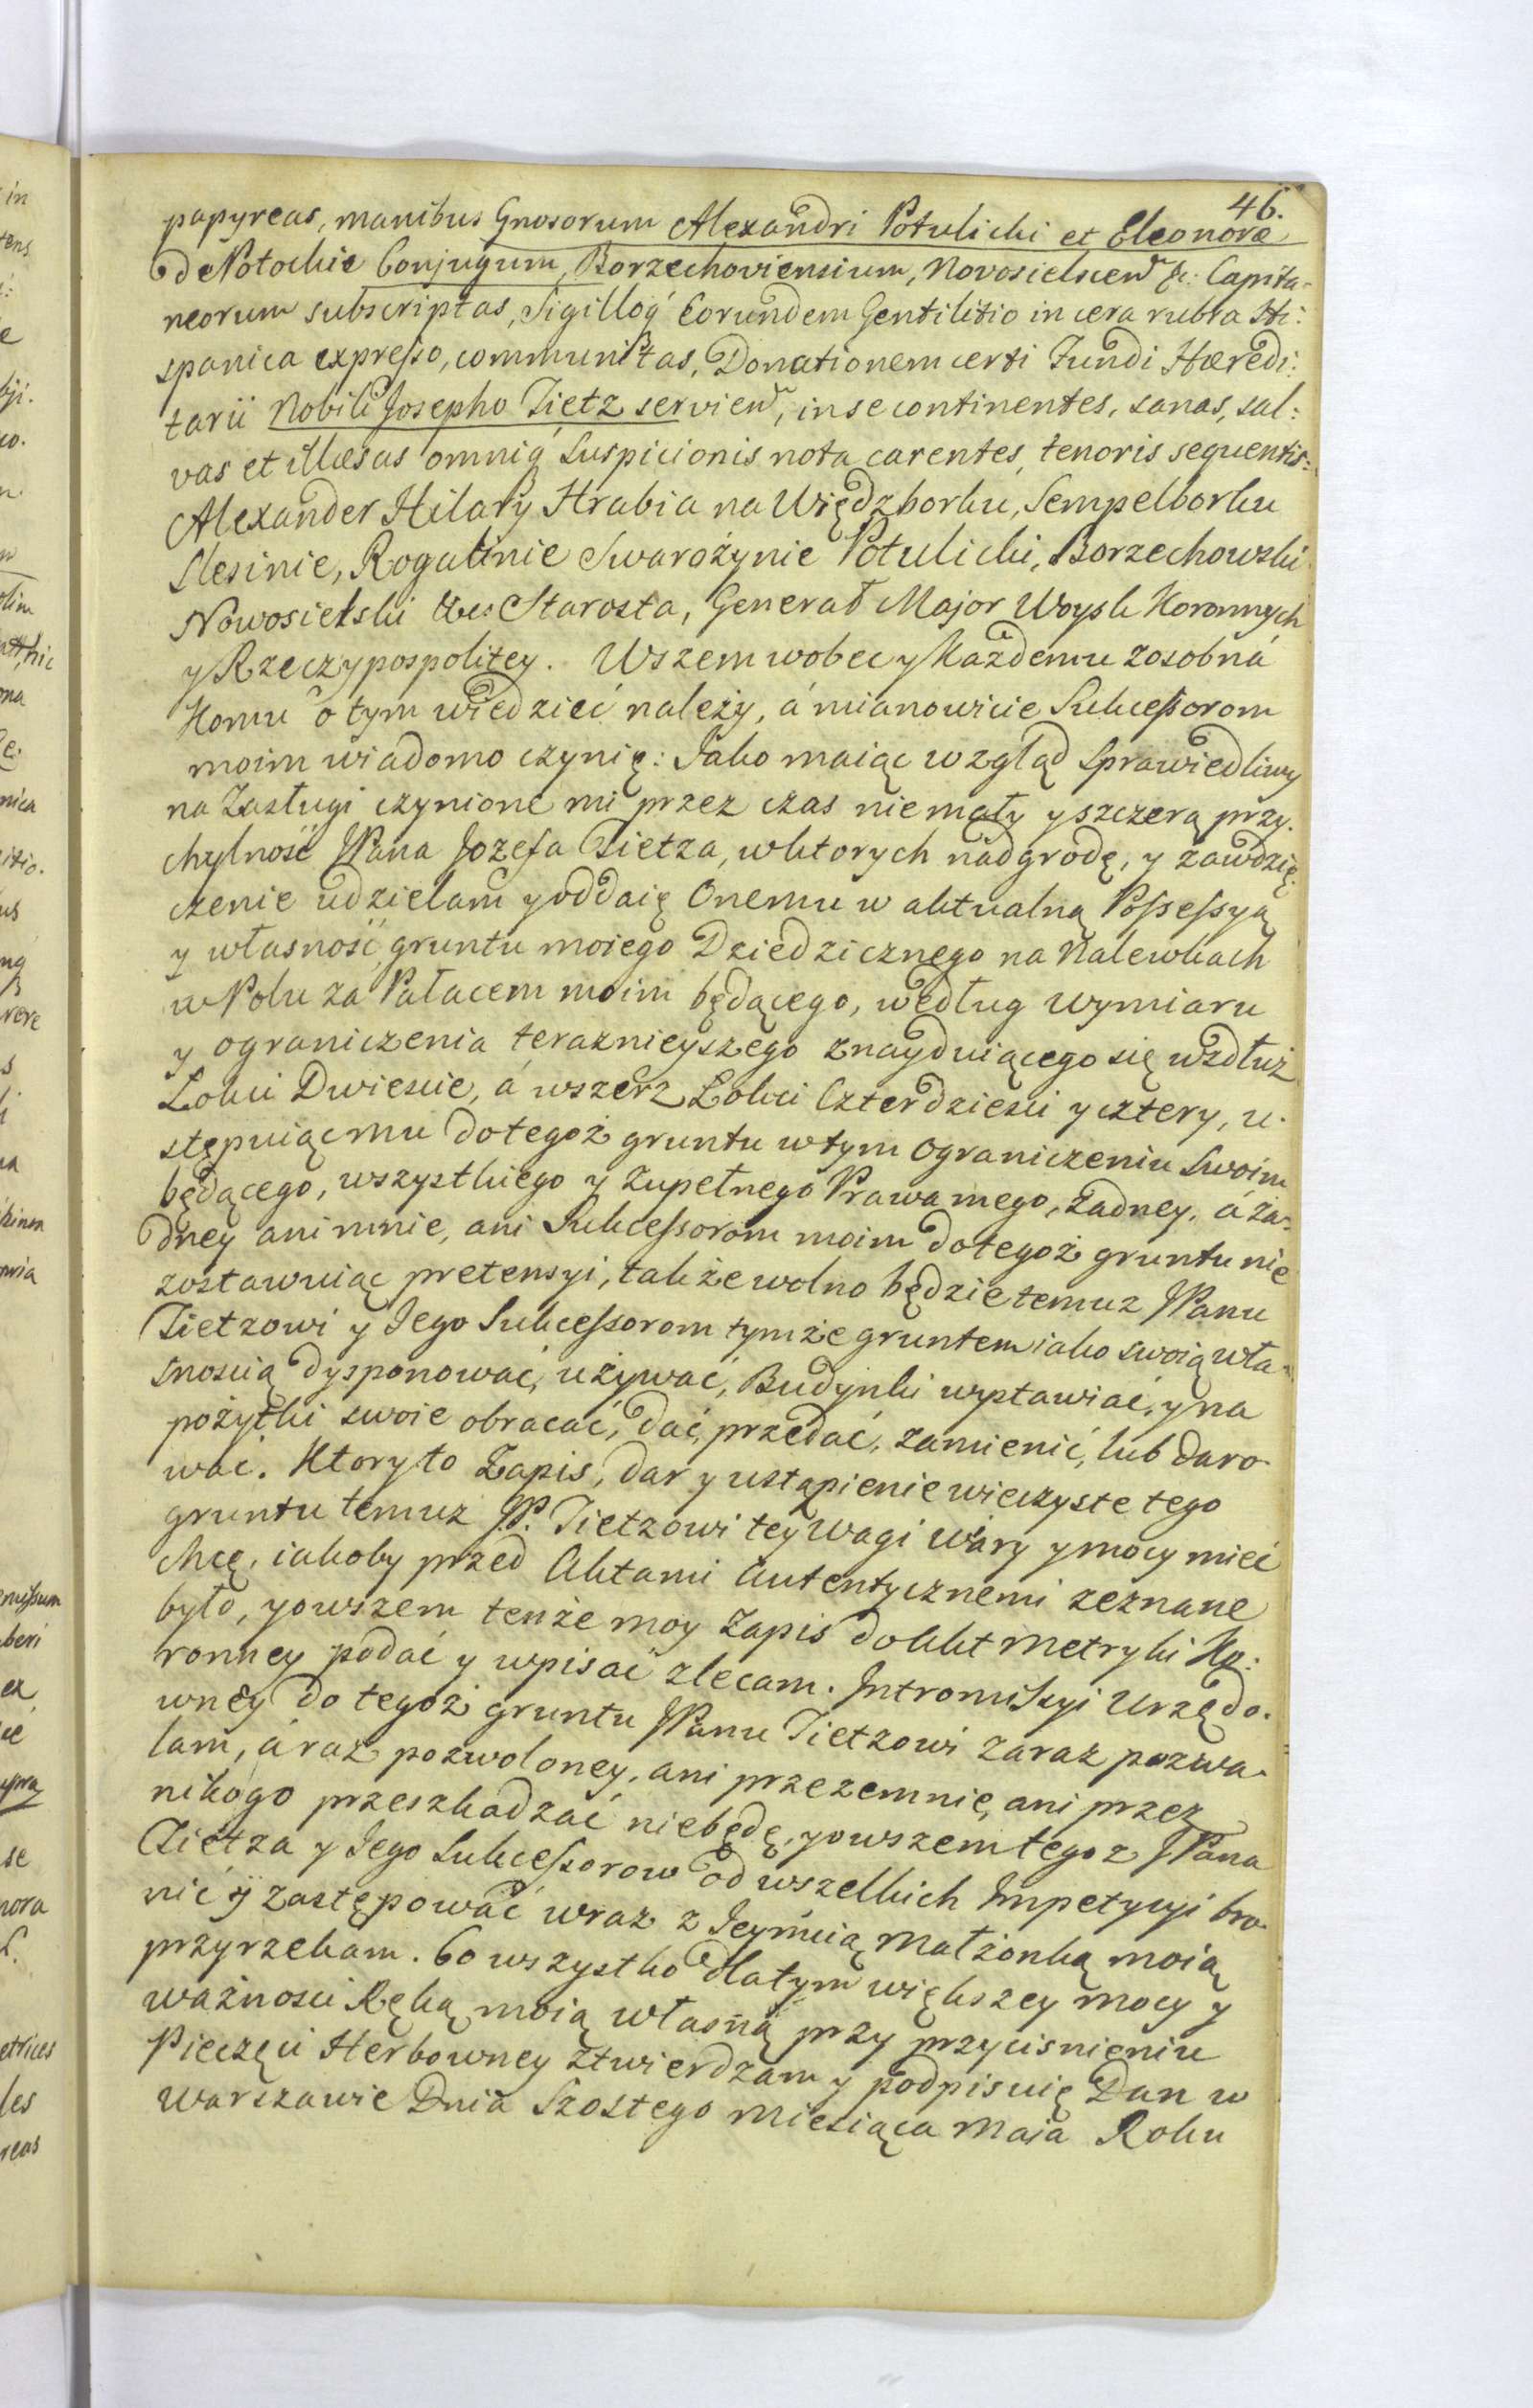 46.
papyreas, manibus Gnosorum Alexandri Potulicki et Eleonoræ
de Potockie Conjugum, Borzechoviensium, Novosielscen &c: Capita=
neorum subscriptas, Sigilloq́ Eorundem Gentilitio in cera rubra Hi:
spanica expresso, communitas, Donationem certi Fundi Hæredi:
tarii Nobili Josepho Tietz servien, in se continentes, sanas, sal:
vas et illæsas omniq́ Suspicionis nota carentes, tenoris sequentis:=
Alexander Hilary Hrabia na Więdzborku, Sempelborku
Slesinie, Rogalinie Swarożynie Potulicki, Borzechowski
Nowosielski &c: Starosta, Generał Major Woysk Koronnych
y Rzeczypospolitey. Wszem wobec y Każdemu zosobná
Komu o tym wiedzieć należy, á mianowicie Sukcessorom
moim wiadomo czynię: Jako maiąc wzgląd Sprawiedliwy
na Zasługi czynione mi przez czas niemały y szczerą przy.
chylność JPana Jozefa Tietza, w ktorych nadgrodę, y zawdzię.
czenie udzielam y oddaię Onemu w aktualną Possessyą
y własność gruntu moiego Dziedzicznego na Nalewkach
w Polu za Pałacem moim będącego, według wymiaru
y ograniczenia teraznieyszego znayduiącego się wzdłuż
Lokci Dwiescie, á wszerz Lokci Czterdziesci y cztery, u.
stępuiąc mu do tegoż gruntu w tym Ograniczeniu Swoim
będącego, wszystkiego y zupełnego Prawa mego, Żadney, á ża=
dney ani mnie, ani Sukcessorom moim do tegoż gruntu nie
zostawuiąc pretensyi, także wolno będzie temuz JPanu
Tietzowi y Jego Sukcessorom tymże gruntem iako swoią wła=
snoscią dysponować, używać, Budynki wystawiać, y na
pożytki swoie obracać, dać, przedać, zamienić, lub daro.
wać. Ktory to Zapis, dar y ustąpienie wieczyste tego
gruntu temuz JP. Tietzowi tey wagi wiary y mocy mieć
chcę, iakoby przed Aktami Autentycznemi zeznane
było, y owszem tenże moy Zapis do Akt Metryki Ko:
ronney podać y wpisać zlecam. Intromissyi Urzędo.
wney do tegoż gruntu JPanu Tietzowi zaraz pozwa.
lam, á raz pozwoloney, ani przezemnie, ani przez
nikogo przeszkadzać niebędę, y owszem tegoz JPana
Tietza y Jego Sukcessorow od wszelkich Impetycyi bro.
nić y zastępować wraz z Jeymcią Małżonką moią
przyrzekam. Co wszystko dla tym większey mocy y
ważnosci Ręką moią własną przy przycisnieniu
Pieczęci Herbowney ztwierdzam y podpisuię Dan w
Warszawie Dnia Szostego Miesiąca Maia Roku